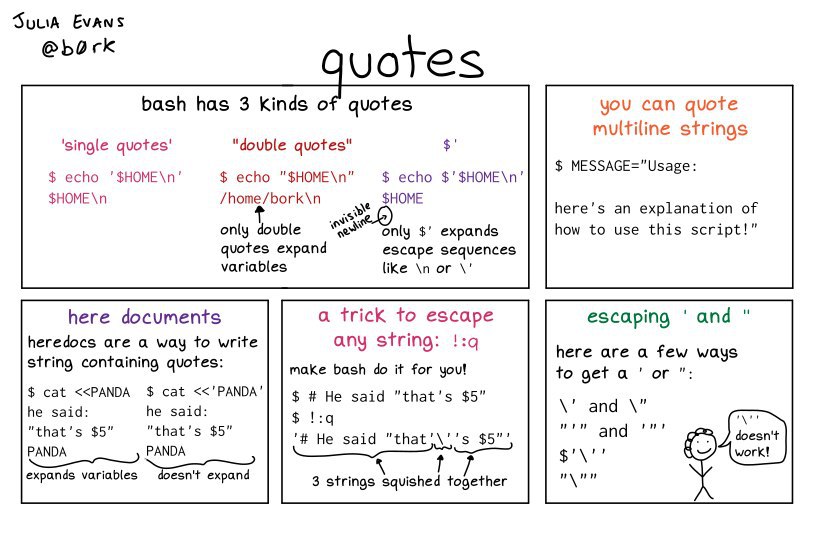 JULIA EVANS
@b0rk
quotes
bash has 3 kinds of quotes
'single quotes'
$ echo '$HOME\n'
$HOME\n
"double quotes"
$ echo "$HOME\n"
/home/bork\n
only double
quotes expand
variables
$'
$ echo $'$HOME\n'
$HOME
invisible
newline
only $' expands
escape sequences
like \n or \'
you can quote
multiline strings
$ MESSAGE="Usage:
here's an explanation of
how to use this script!"
here documents
heredocs are a way to write
string containing quotes:
$ cat <<PANDA
he said:
"that's $5"
PANDA
expands variables
$ cat <<'PANDA'
he said:
"that's $5"
PANDA
doesn't expand
a trick to escape
any string: !:q
make bash do it for you!
$ # He said "that's $5"
$ !:q
'# He said "that'\''s $5"'
3 strings squished together
escaping ' and "
here are a few ways
to get a ' or ":
\' and \"
"'" and '"'
$'\''
"\""
'\''
doesn't
work!